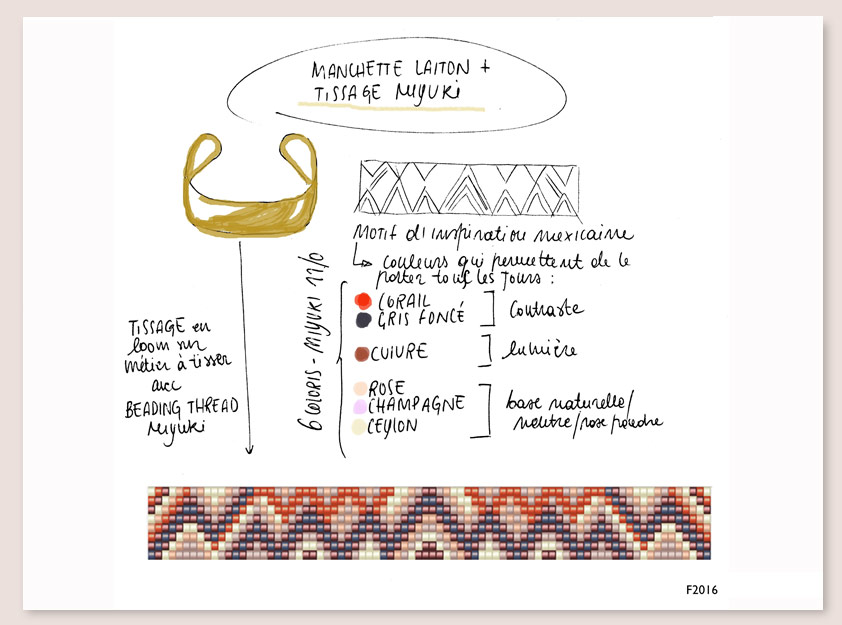 MANCHETTE LAITON +
TISSAGE MIYUKI
MOTIF d'inspiration mexicaine
couleurs qui permettent de le
porter tous les jours :
6 COLORIS - MIYUKI 11/0
CORAIL
GRIS FONCÉ
Contraste
CUIVRE
lumière
ROSE
CHAMPAGNE
CEYLON
base naturelle/
neutre/rose poudre
TISSAGE en
loom sur
métier à tisser
avec
BEADING THREAD
MIYUKI
F2016